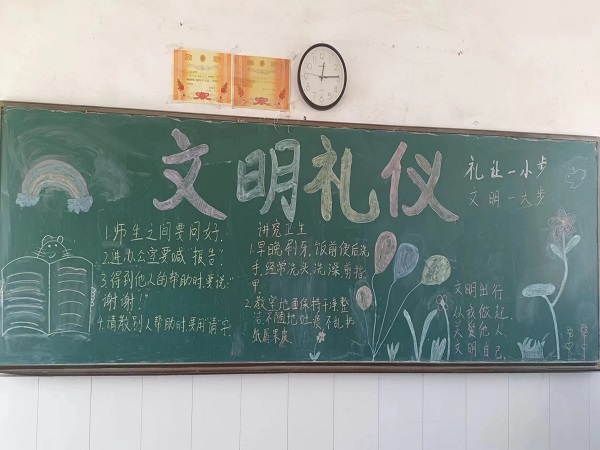 文明礼仪
礼让一小步
文明一大步
1.师生之间要问好.
2.进办公室要喊"报告".
3.得到他人的帮助时,要说"
谢谢!"
4.请教别人帮助时要用"请"字
讲究卫生
1.早晚刷牙,饭前便后洗
手,经常洗头洗澡剪指
甲
2.教室地面保持干净整
洁,不随地吐痰不乱扔
纸屑果皮
文明出行
从我做起
关爱他人
文明自己